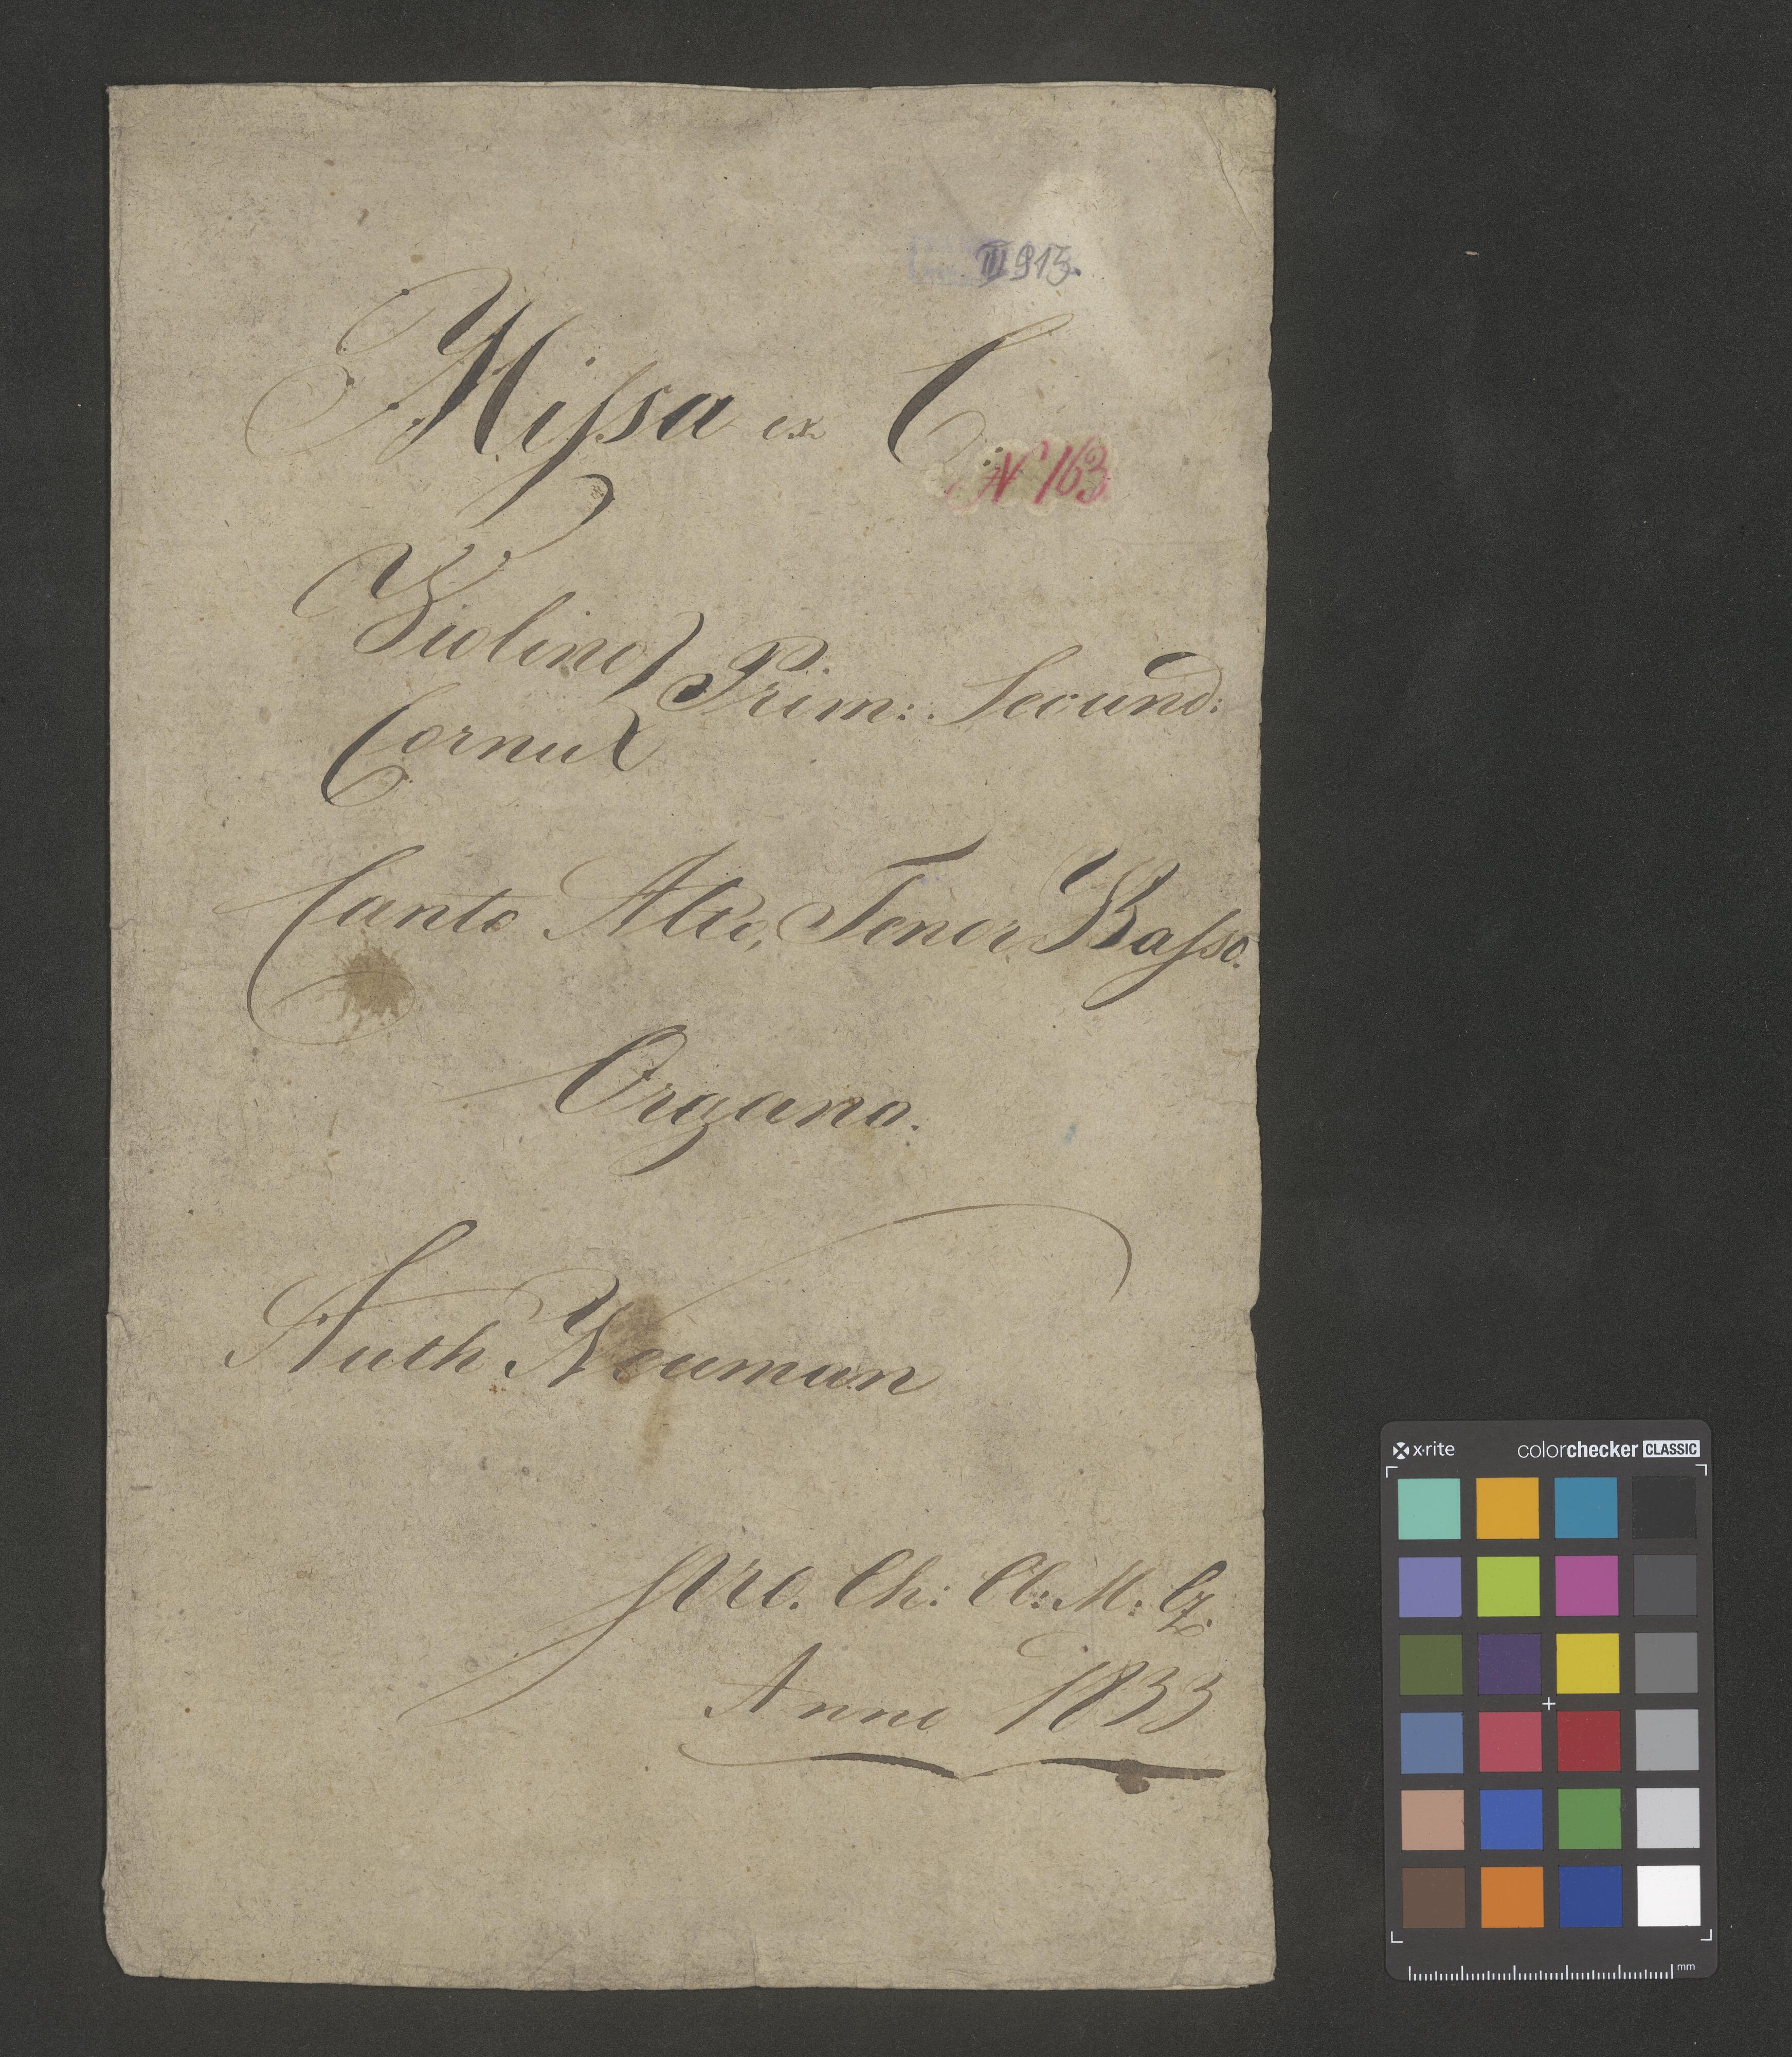 III 913.
Missa ex C.
N 163
Violino
Prim: Secund:
Cornu
Canto Alto, Tenor Basso.
Organo.
Auth Neuman
Pro. Ch: Cl: M: Cz.
Anno 1833
x·rite colorchecker CLASSIC
mm